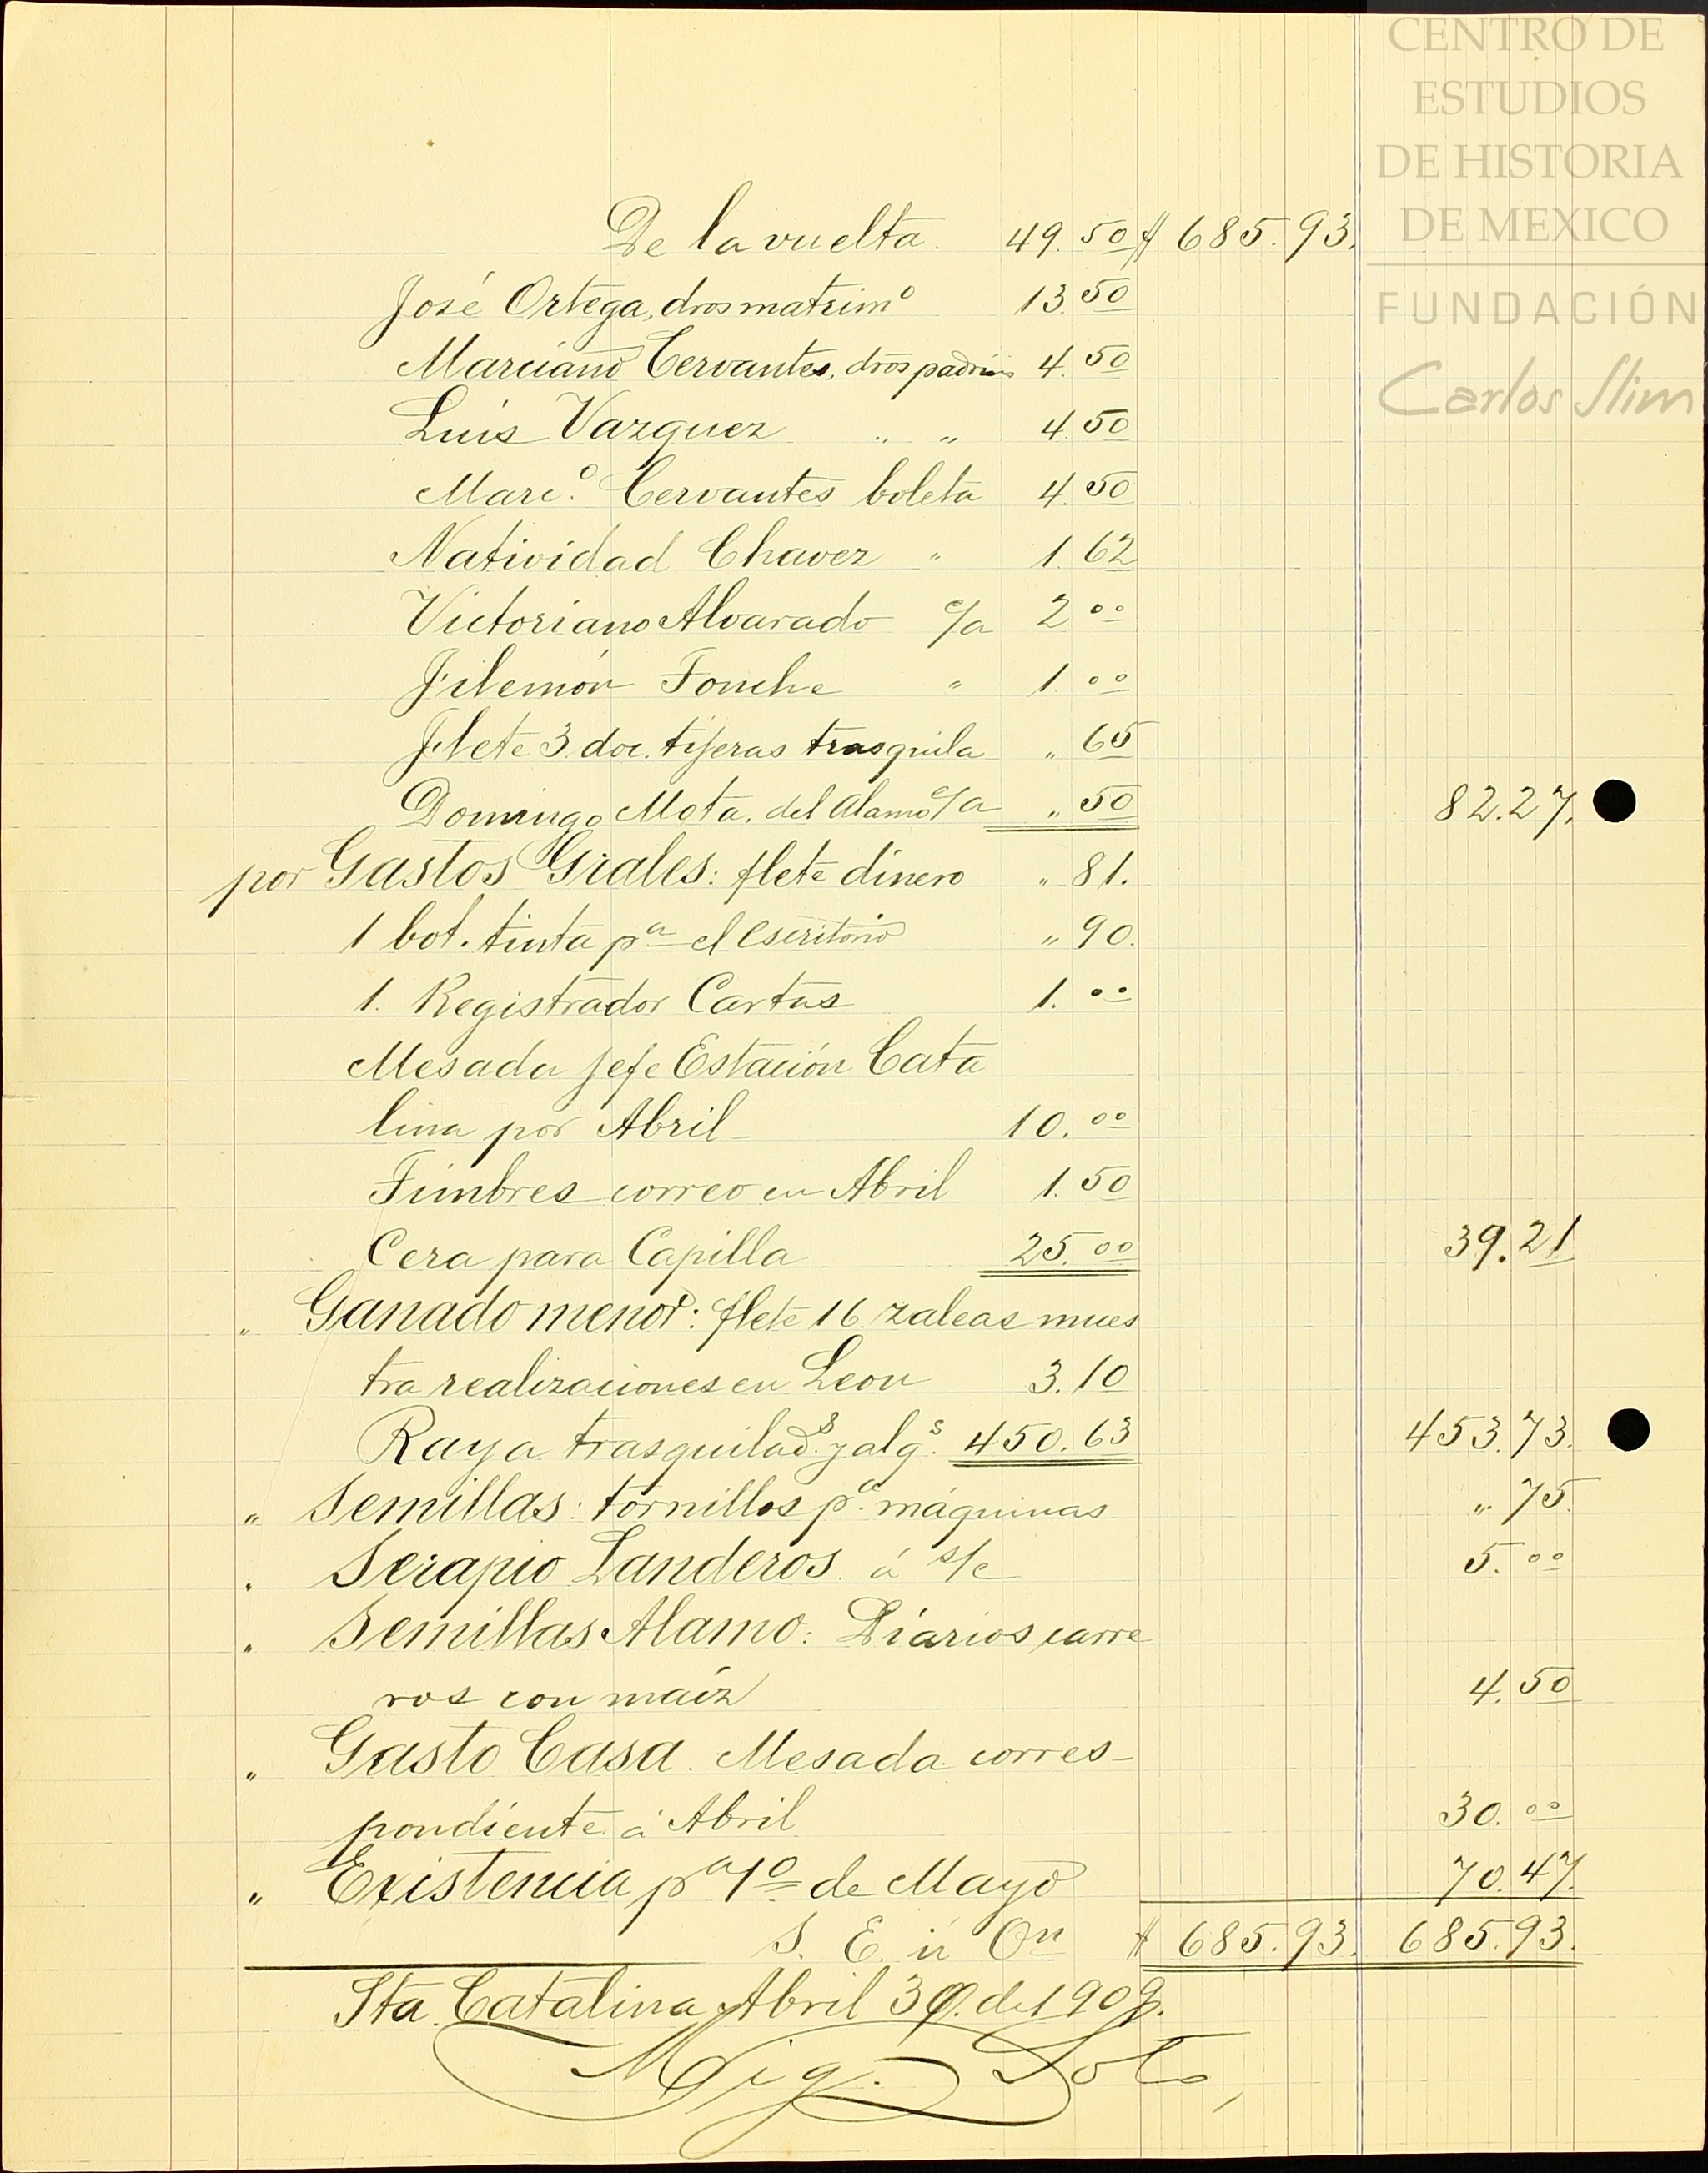 CENTRO DE
ESTUDIOS
DE HISTORIA
DE MEXICO
FUNDACIÓN
Carlos Slim
De la vuelta. 49.50 $ 685.93.
José Ortega, dros matrimº 13.50
Marciano Cervantes, dros padrins 4.50
Luis Vazquez " " 4.50
Marc.º Cervantes boleta 4.50
Natividad Chavez " 1.62
Victoriano Alvarado c/a 2.00
Filemón Fonche " 1.00
Flete 3 doc. tijeras trasquila " 65
Domingo Mota, del Alamo c/a " 50 82.27.
por Gastos Grales: flete dinero " 81.
1 bot. tinta pª el escritorio " 90.
1. Registrador Cartas 1.00
Mesada Jefe Estación Cata
lina por Abril 10.00
Timbres correo en Abril 1.50
Cera para Capilla 25.00 39.21
" Ganado menor: flete 16 zaleas mues
tra realizaciones en Leon 3.10
Raya trasquilad.s y alg.s 450.63 453.73.
" Semillas: tornillos pª máquinas " 75.
" Serapio Landeros á s/c 5.00
" Semillas Alamo: Diarios carre
ros con maíz 4.50
" Gasto Casa. Mesada corres-
pondiente á Abril 30.00
" Existencia pª 1º de Mayo 70.47.
S. E. ú On $ 685.93. 685.93.
Sta. Catalina, Abril 30. de 1909.
Mig. Soto